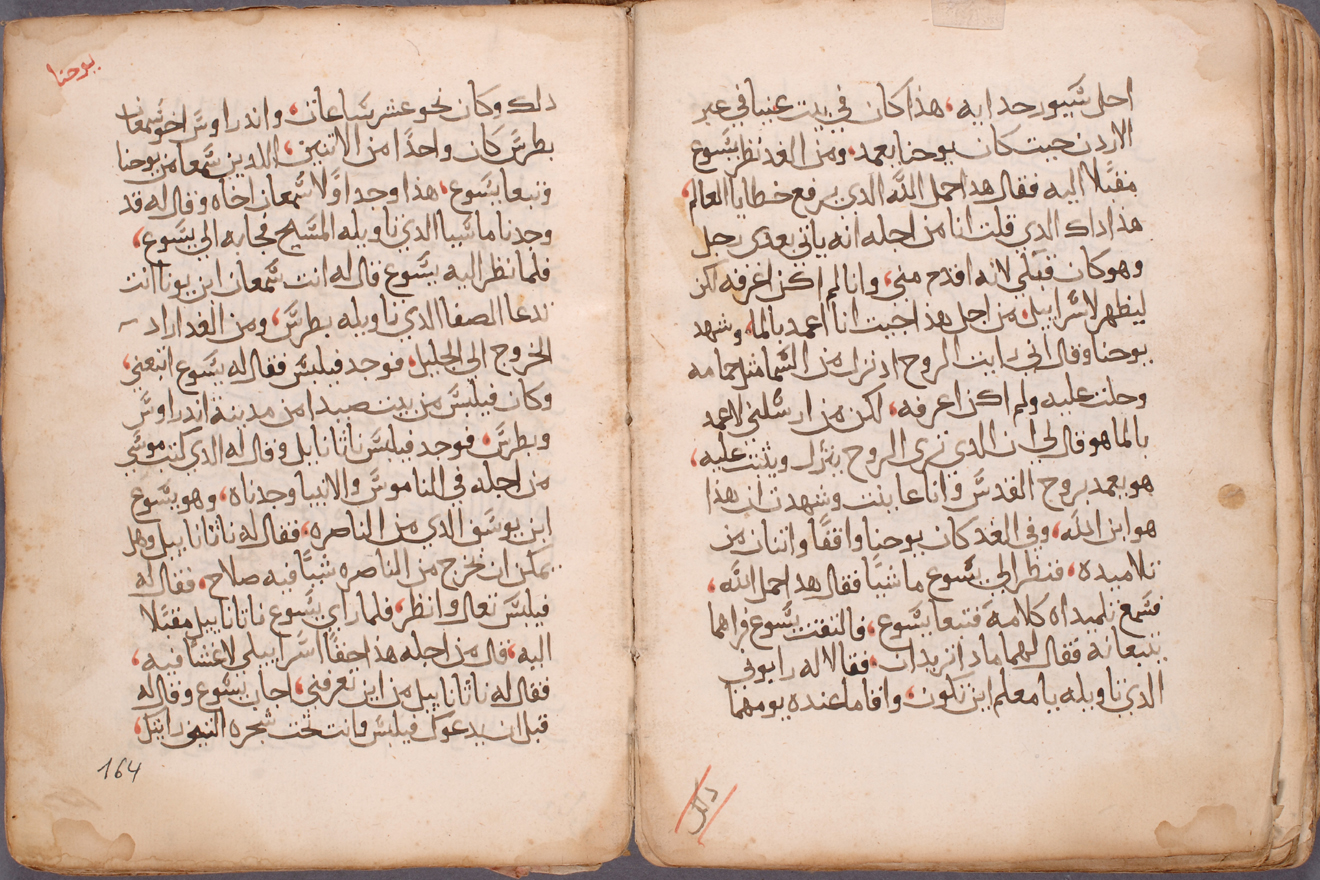 احل سيور حدايه، هذا كان في بيت عنيا في عبر
الاردن حيث كان يوحنا يعمد، ومن الغد نظر يسوع
مقبلا اليه فقال هدا حمل الله الدي يرفع خطايا العالم،
هذا داك الدي قلت انا من اجله انه ياتي بعدي رجل
وهو كان قبلي لانه اقدم مني، وانا لم اكن اعرفه لكن
ليظهر لاسراييل، من اجل هذا جيت انا اعمد بالما، وشهد
يوحنا وقال اني رايت الروح اد نزل من السما مثل حمامه
وحلت عليه ولم اكن اعرفه، لكن من ارسلني لاعمد
بالما هو قال لي ان الدي ترى الروح ينزل ويثبت عليه،
هو يعمد بروح القدس وانا عاينت وشهدت ان هذا
هو ابن الله، وفي الغد كان يوحنا واقفا واتنان من
تلاميده، فنظر الى يسوع ماشيا فقال هدا حمل الله،
فسمع تلميداه كلامه فتبعا يسوع، فالتفت يسوع فراهما
يتبعانه فقال لهما مادا تريدان، فقالا له رابوني
الدي تاويله يا معلم اين تكون، واقاما عنده يومهما
دلك
يوحنا
دلك وكان نحو عشر ساعات، واندراوس اخو سمعان
بطرس كان واحدا من الاتنين، اللدين سمعا من يوحنا
وتبعا يسوع، هذا وجد اولا سمعان اخاه وقال له قد
وجدنا ماسيا الدي تاويله المسيح فجا به الى يسوع،
فلما نظر اليه يسوع قال له انت سمعان ابن يونا انت
تدعا الصفا الدي تاويله بطرس، ومن الغد اراد
الخروج الى الجليل، فوجد فيلبس فقال له يسوع اتبعني،
وكان فيلبس من بيت صيدا من مدينة اندراوس
وبطرس، فوجد فيلبس ناثانايل وقال له الدي كتب موسى
من اجله في الناموس والانبيا وجدناه، وهو يسوع
ابن يوسف الدي من الناصره، فقال له ناثاناييل وهل
يمكن ان يخرج من الناصره شيا فيه صلاح، فقال له
فيلبس تعال وانظر، فلما راي يسوع ناثاناييل مقبلا
اليه، قال من اجله هذا حقا اسراييلي لا غش فيه،
فقال له ناثاناييل من اين تعرفني، اجاب يسوع وقال له
قبل ان يدعوك فيلبس وانت تحت شجره التين رايتك،
164